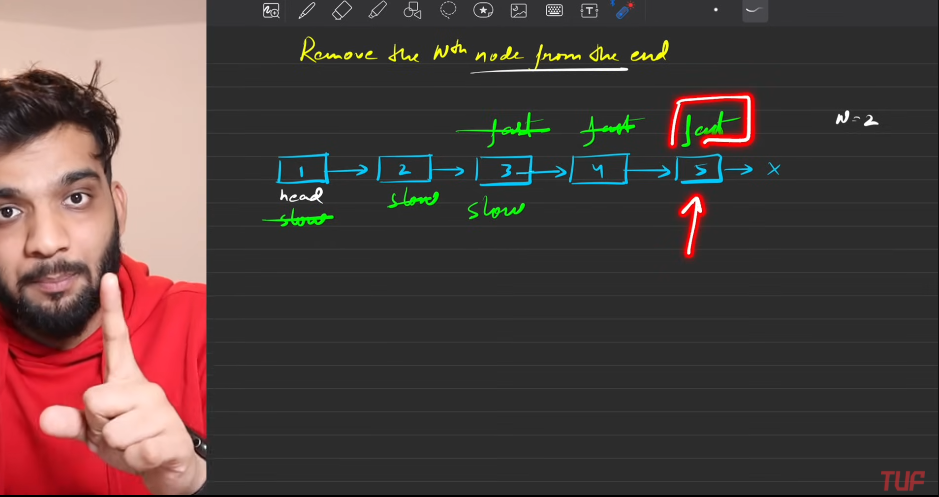 Remove the Nth node from the end
fast fast fast N=2
1 2 3 4 5 X
head slow slow
slow
TUF